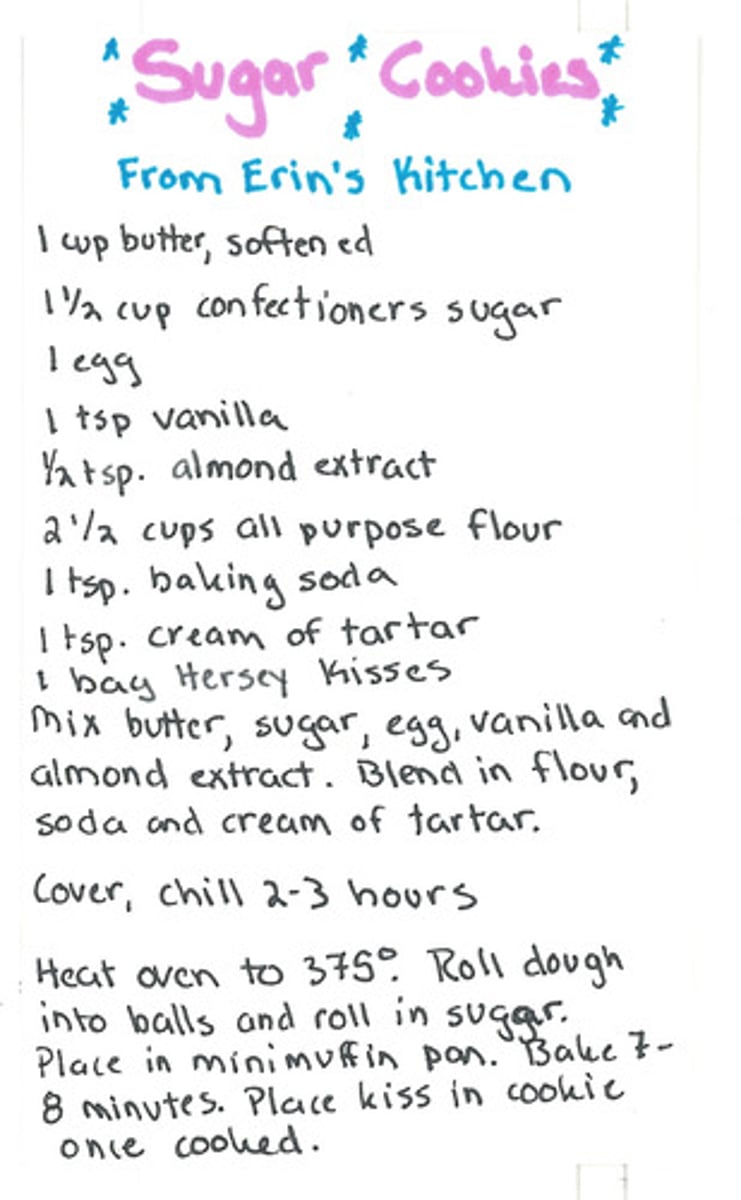 * Sugar * Cookies *
* * *
From Erin's Kitchen
1 cup butter, softened
1 1/2 cup confectioners sugar
1 egg
1 tsp vanilla
1/2 tsp. almond extract
2 1/2 cups all purpose flour
1 tsp. baking soda
1 tsp. cream of tartar
1 bag Hersey Kisses
Mix butter, sugar, egg, vanilla and
almond extract. Blend in flour,
soda and cream of tartar.
Cover, chill 2-3 hours
Heat oven to 375°. Roll dough
into balls and roll in sugar.
Place in mini muffin pan. Bake 7-
8 minutes. Place kiss in cookie
once cooked.